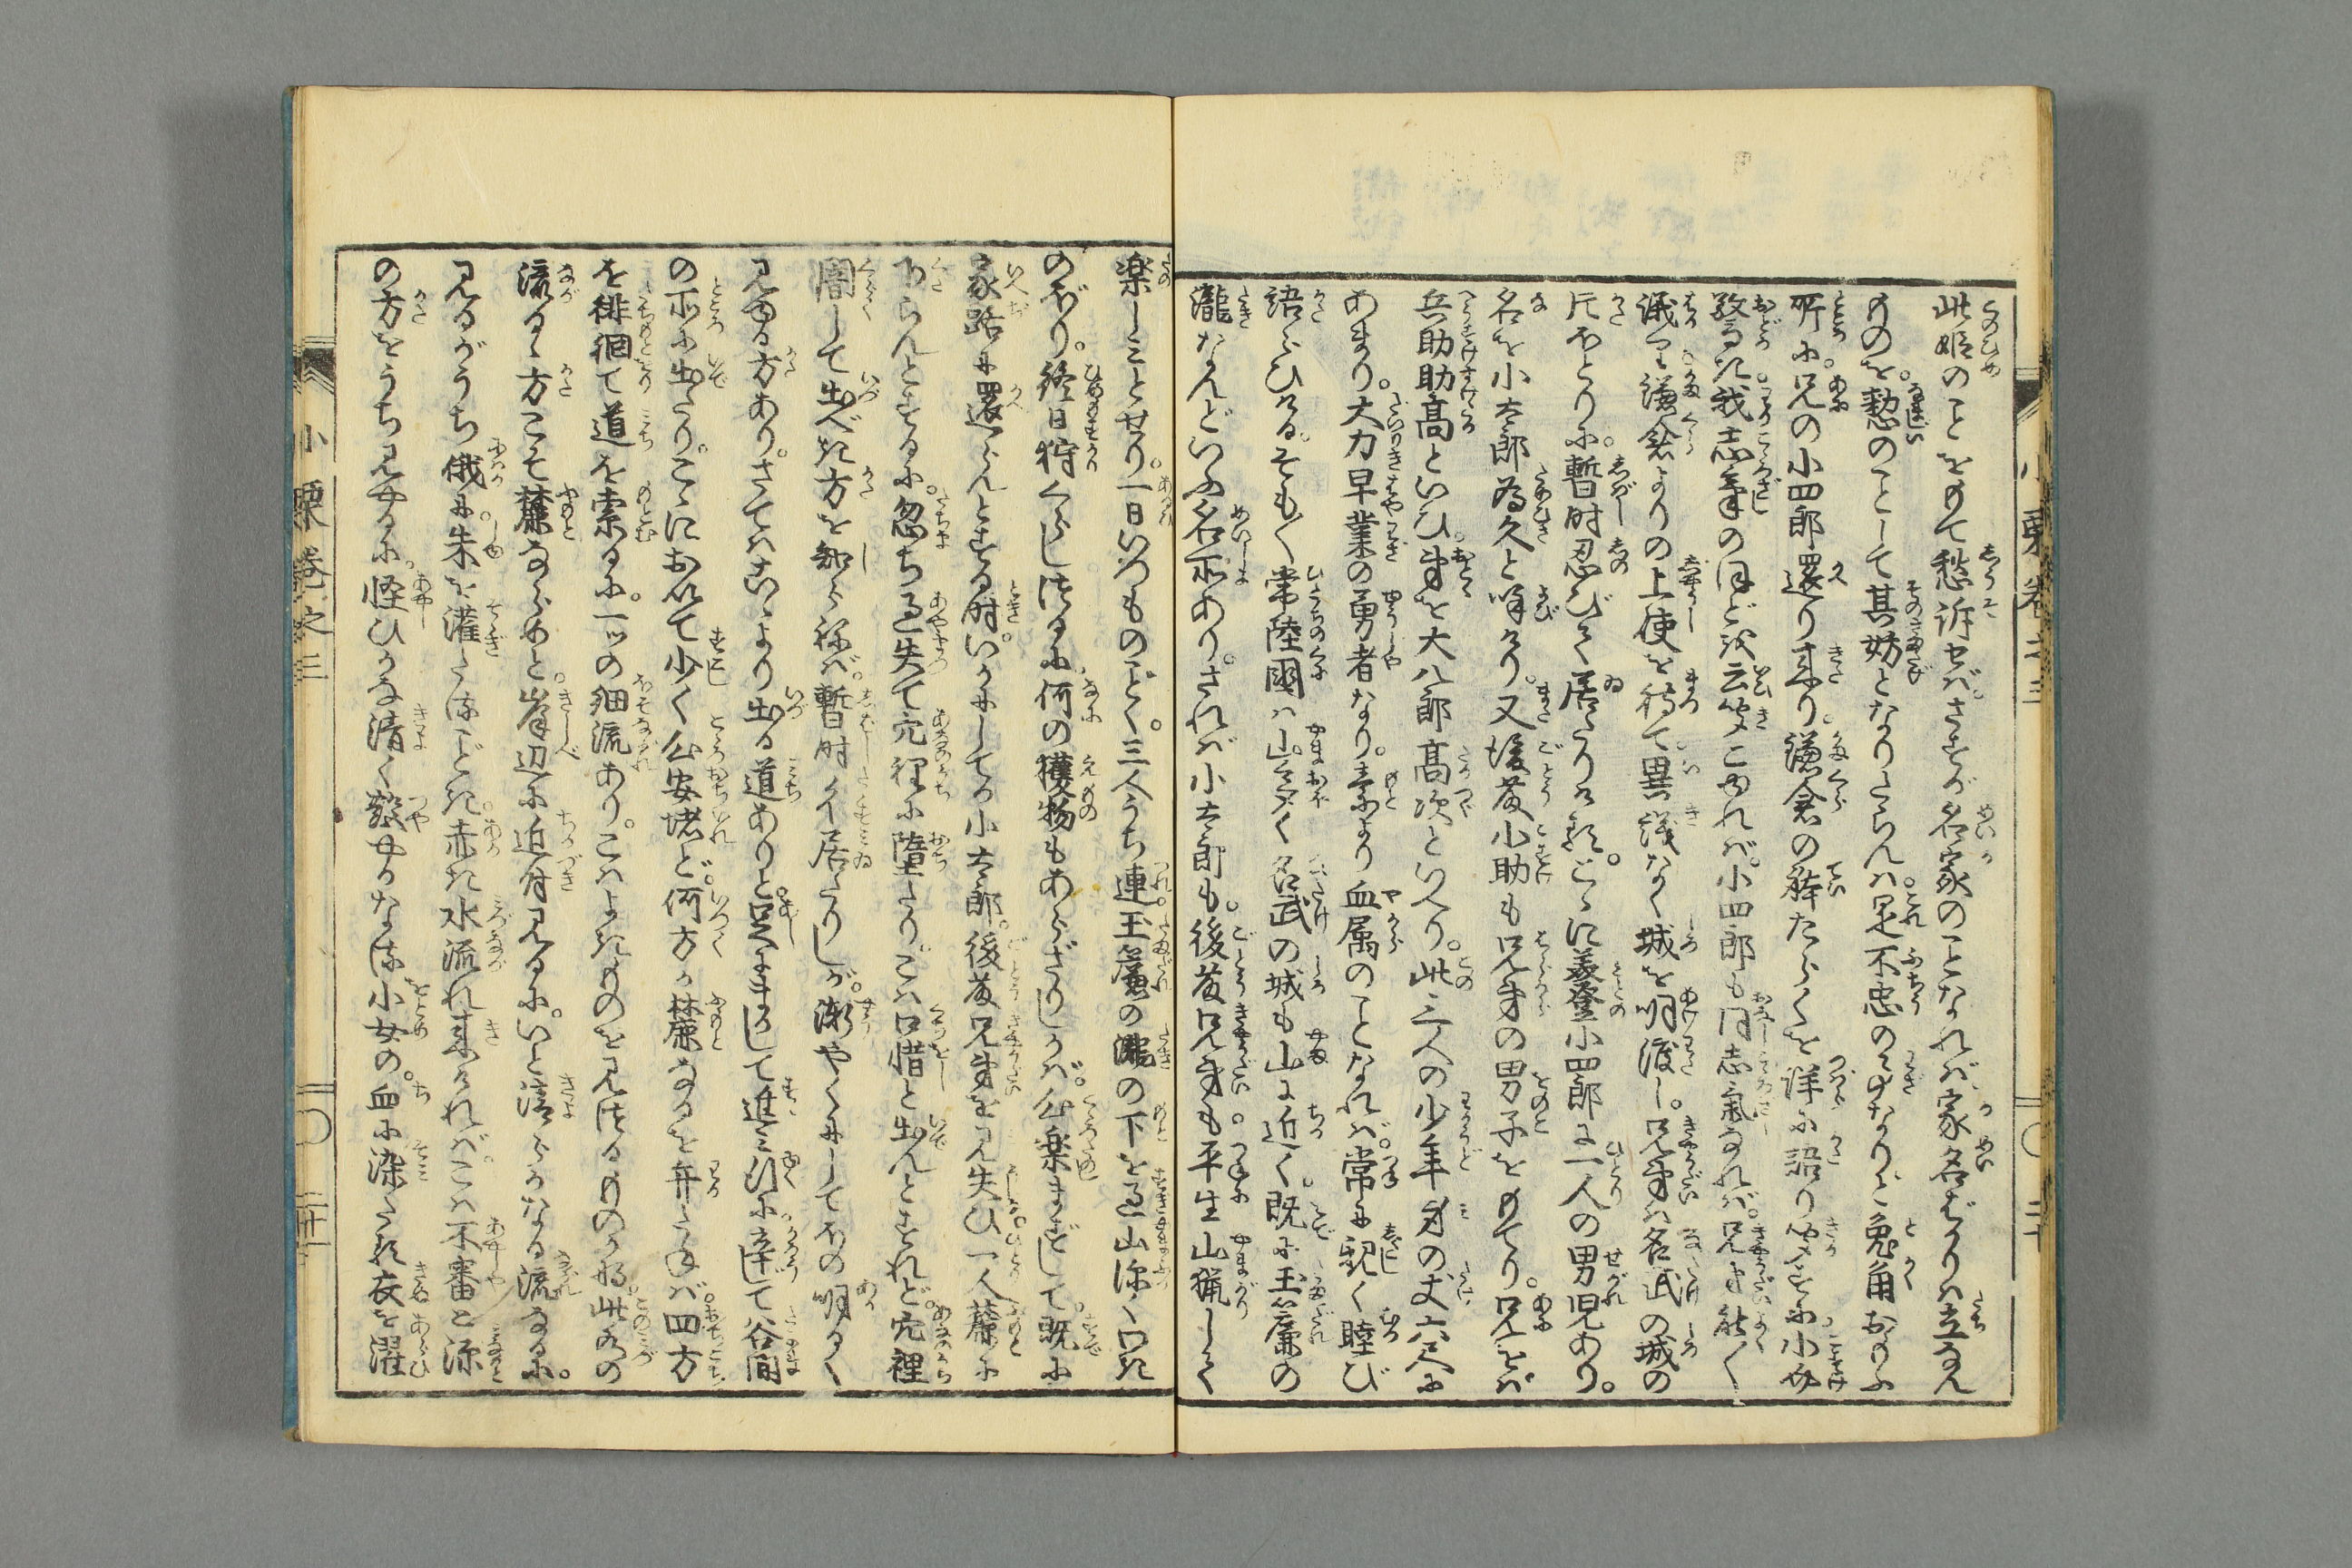 此姫のことをもて愁訴せば。さすが名家のことなれば家名ばかりは立なん
ものを。懃のことして其妨となりたらんは。是不忠のみなりと兎角おもふ
所に。兄の小四郎還り来り。鎌倉の体たらくを詳に語り聞すに小助
驚き我志気のほどを云聞こゆれば。小四郎も同志気なれば。兄弟能く
議り鎌倉よりの上使を待て。異議なく城を明渡し。兄弟は名武の城の
片ほとりに。暫時忍びて居たりける。ここに美登小四郎に一人の男児あり。
名を小太郎為久と呼けり。又後藤小助も兄弟の男子をもてり。兄をば
兵助助高といひ。弟を大八郎高次といへり。此三人の少年身の丈六尺に
あまり。大力早業の勇者なり。素より血属のことなれば。常に親く睦び
語らひける。そも〳〵常陸国は山多く名武の城も山に近く。既に玉簾の
瀧なんどいふ名所あり。されば小太郎も。後藤兄弟も平生山猟して
楽しみとせり。一日いつものごとく。三人うち連玉簾の瀧の下を過山深く口き
のぼり。終日狩くらしけるに何の獲物もあらざりしかば。公楽まずして。既に
家路に還らんとする時。いかにしてか小太郎。後藤兄弟を見失ひ一人麓に
下らんとするに。忽ち過失て穴裡に堕たり。こは口惜と出んとすれど。穴裡
闇して出べき方を知らねば。暫時イ居たりしが。漸やくにしてほの明るく
見ゆる方あり。さてはこゝより出る道ありと足にまかして進み行に辛じて谷間
の所に出たり。こゝにおゐて少く公安堵ど。何方か麓なるを弁えねば。四方
を徘徊て道を索るに。一ツの細流あり。こはよきものを見けるものかな。此水の
流るゝ方こそ麓ならめと。岸辺に近付見るに。いと清らかなる流なるに。
見るがうち俄に朱を灌たるごとき。赤き水流れ来ければ。こは不審と源
の方をうち見やるに。怪ひかな清く艶やかなる小女の。血に染たる衣を濯
小栗巻之三
三十
小栗巻之三
三十一